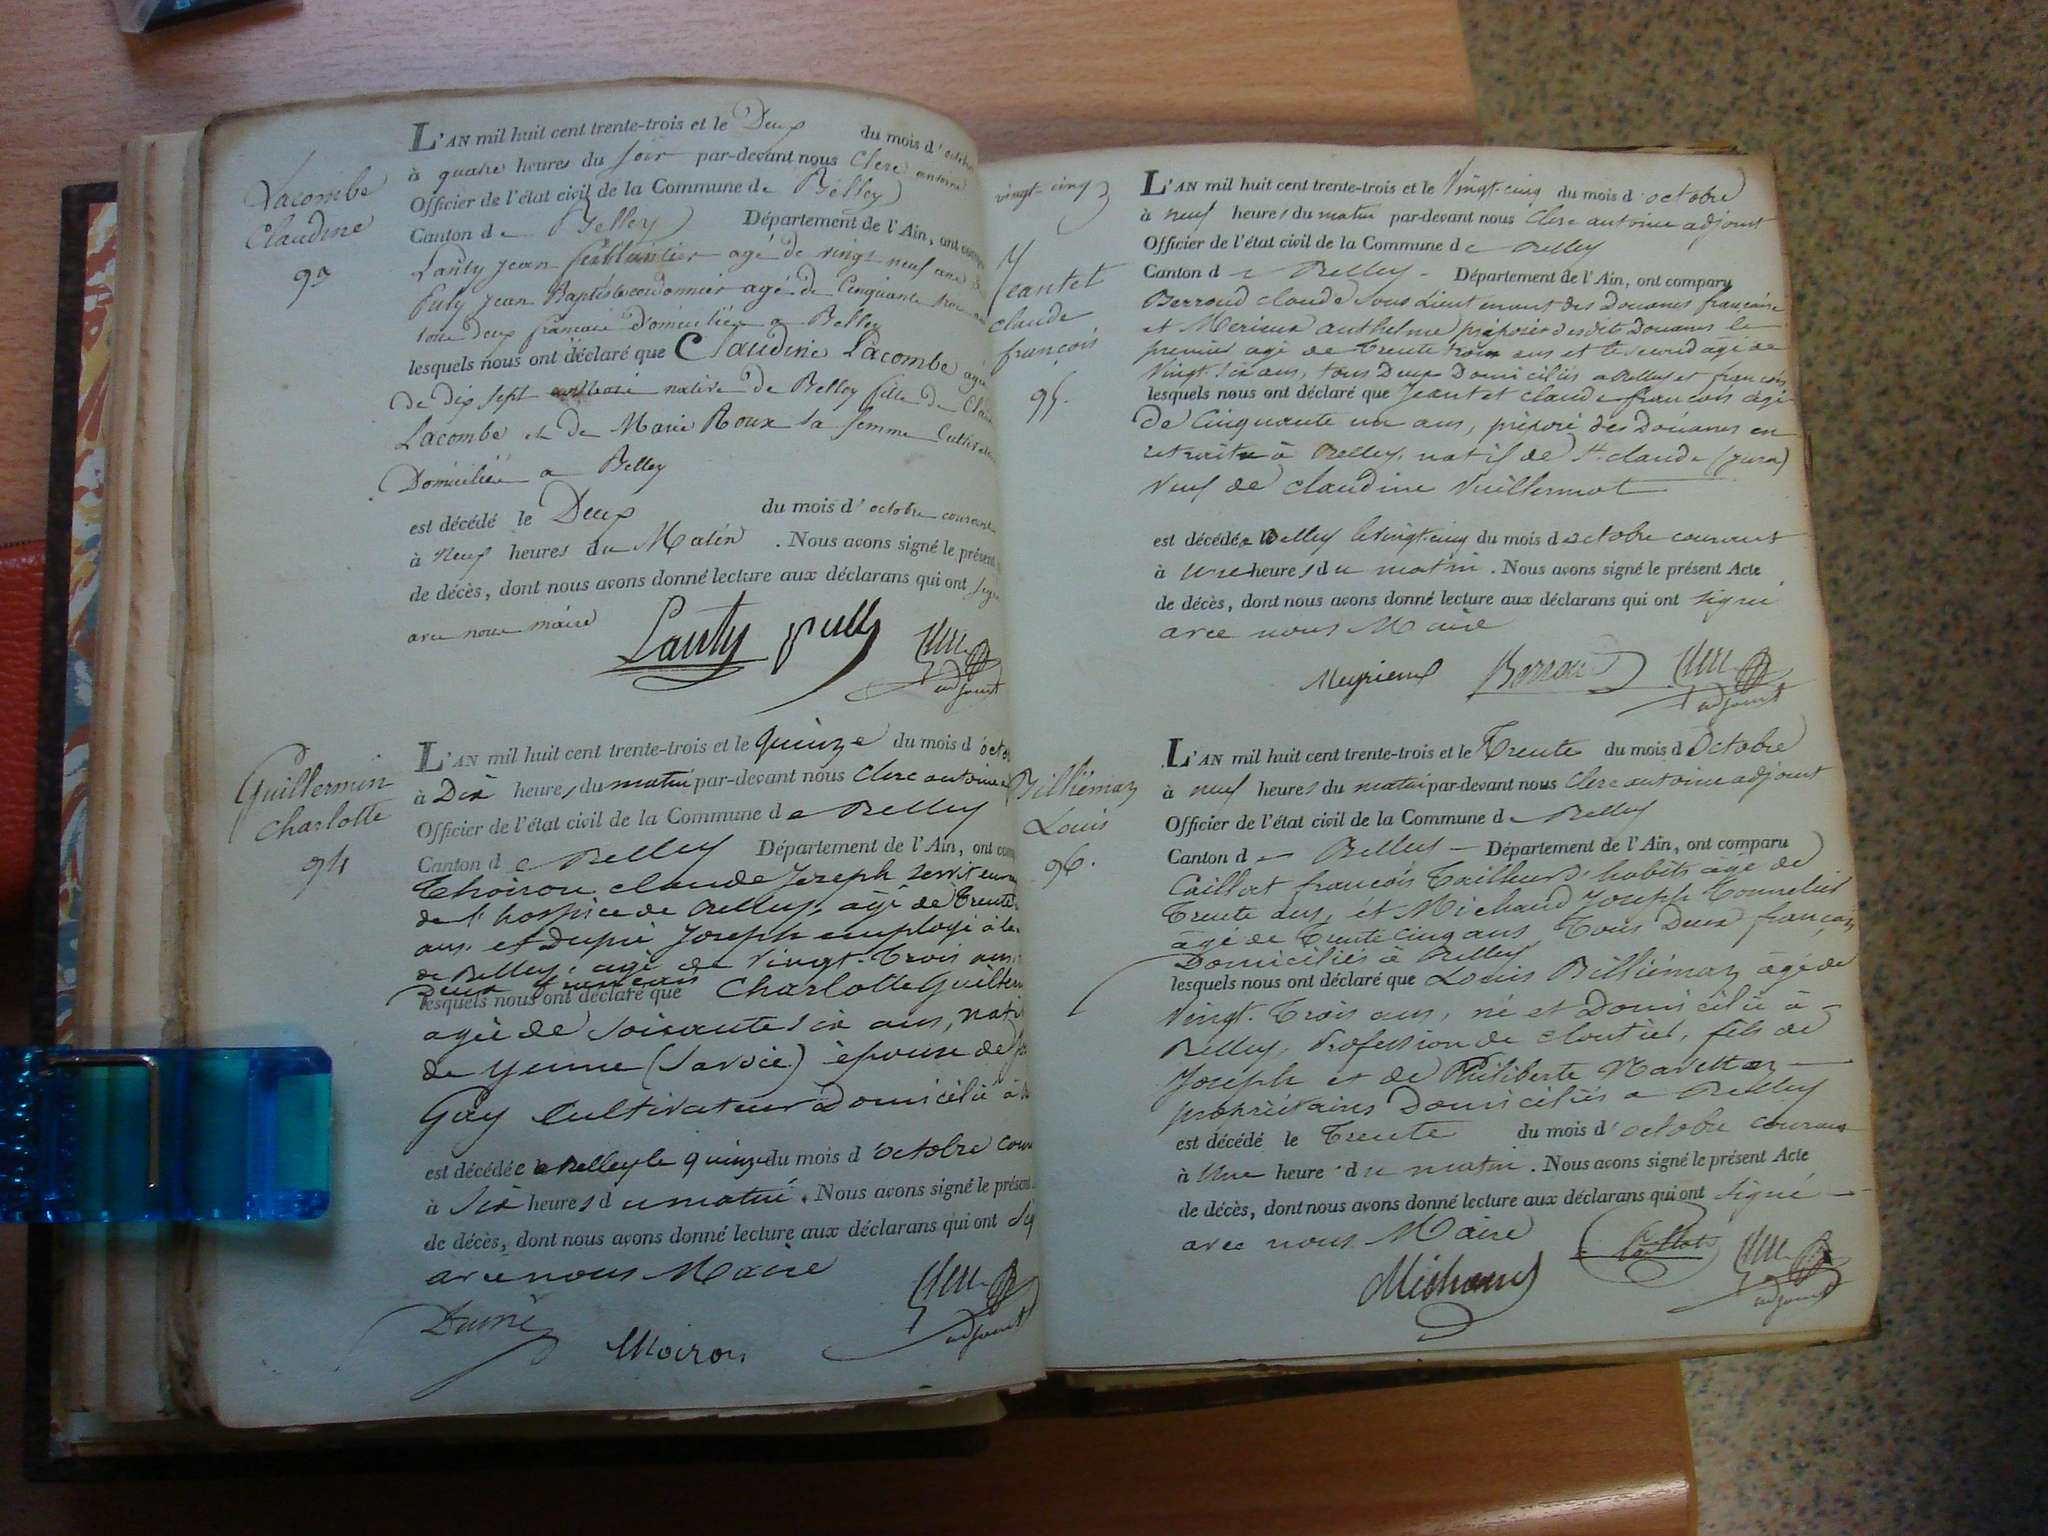 Lacombe
Claudine
93
L'AN mil huit cent trente-trois et le Deux du mois d'octobre
à quatre heures du soir par-devant nous Clerc antoine
Officier de l'état civil de la Commune de Belley
Canton de Belley Département de l'Ain, ont
Lanty jean ferblantier agé de vingt neuf ans
jean Baptiste cordonnier agé de Cinquante
tous deux francais Domiciliés a Belley
lesquels nous ont déclaré que Claudine Lacombe agée
de dix sept native de Belley fille de
Lacombe et de Marie Roux sa femme
Domiciliée a Belley
est décédé le Deux du mois d'octobre courant
à neuf heures du Matin. Nous avons signé le présent
de décès, dont nous avons donné lecture aux déclarans qui ont
avec nous maire
Lanty
adjoint
Guillermin
Charlotte
94
L'AN mil huit cent trente-trois et le quinze du mois d
à Dix heures du matin par-devant nous Clerc antoine
Officier de l'état civil de la Commune de Belley
Canton de Belley Département de l'Ain, ont
claude Joseph
de l'hospice de Belley, âgé de trente
ans et Dupré Joseph employé à la
de Belley, agé de vingt-trois ans
Deux francais
lesquels nous ont déclaré que Charlotte
agée de soixante six ans,
de yenne (Savoie) épouse de
Gay Cultivateur Domicilié à
est décédée a Belley le quinze du mois d'octobre
à Six heures du matin. Nous avons signé le présent
de décès, dont nous avons donné lecture aux déclarans qui ont
avec nous Maire
adjoint
vingt-cinq
Jeantet
claude
françois
95.
L'AN mil huit cent trente-trois et le Vingt-cinq du mois d'octobre
à neuf heures du matin par-devant nous Clerc antoine adjoint
Officier de l'état civil de la Commune de Belley
Canton de Belley - Département de l'Ain, ont comparu
Berroud claude Sous Lieutenant des Douanes françaises
et Merieux anthelme préposé desdits Douanes le
premier agé de trente trois ans et le second âgé de
Vingt-six ans, tous Deux Domiciliés a Belley et français
lesquels nous ont déclaré que Jeantet claude francois âgé
de Cinquante un ans, préposé des Douanes en
retraite à Belley, natif de St. claude (jura)
Veuf de claudine Vuillermot
est décédé a Belley le vingt cinq du mois d'octobre courant
à une heures du matin. Nous avons signé le présent Acte
de décès, dont nous avons donné lecture aux déclarans qui ont signé
avec nous Maire
Meyrieux
adjoint
Billiémaz
Louis
96.
L'AN mil huit cent trente-trois et le Trente du mois d'Octobre
à neuf heures du matin par-devant nous Clerc antoine adjoint
Officier de l'état civil de la Commune de Belley
Canton de Belley - Département de l'Ain, ont comparu
Caillot françois Tailleur d'habits âgé de
Trente ans, et Michaud Joseph Tonnelier
âgé de Trente cinq ans Tous Deux français
Domiciliés à Belley
lesquels nous ont déclaré que Louis Billiémaz âgé de
Vingt-Trois ans, né et Domicilié à -
Belley, Profession de cloutier, fils de
Joseph et de Philiberte
propriétaires Domiciliés a Belley
est décédé le Trente du mois d'octobre courant
à Une heure du matin. Nous avons signé le présent Acte
de décès, dont nous avons donné lecture aux déclarans qui ont signé
avec nous Maire
Michaud Caillot
adjoint